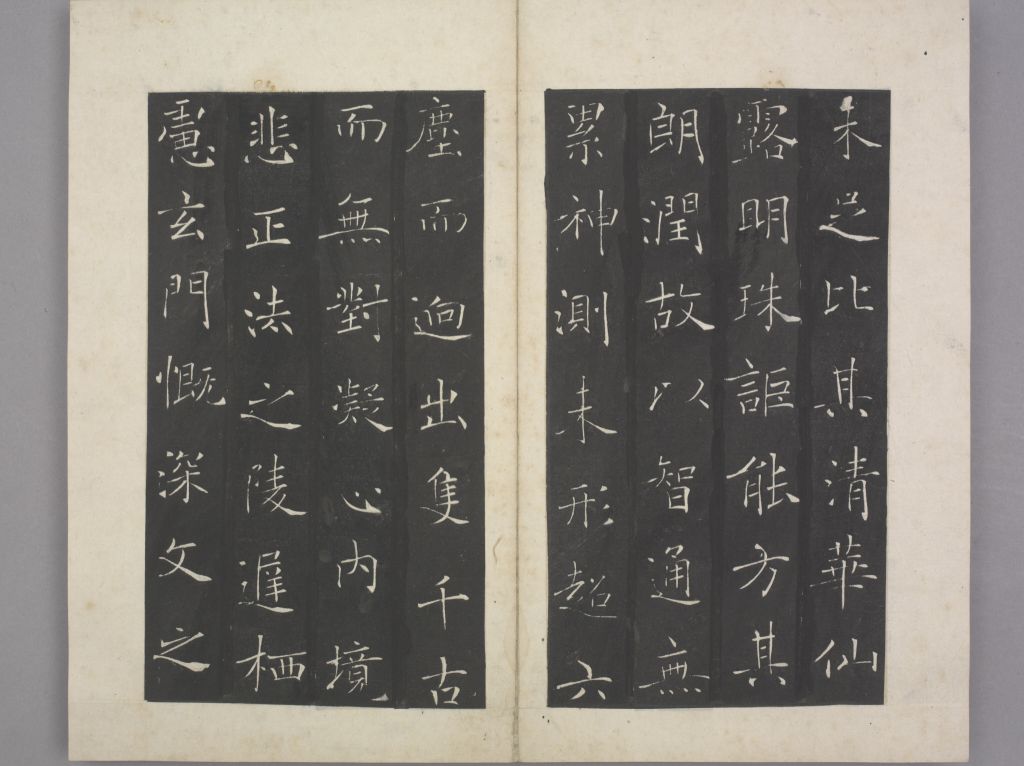 未足比其清華仙
露明珠詎能方其
朗潤故以智通無
累神測未形超六
塵而迥出隻千古
而無對凝心內境
悲正法之陵遲栖
慮玄門慨深文之